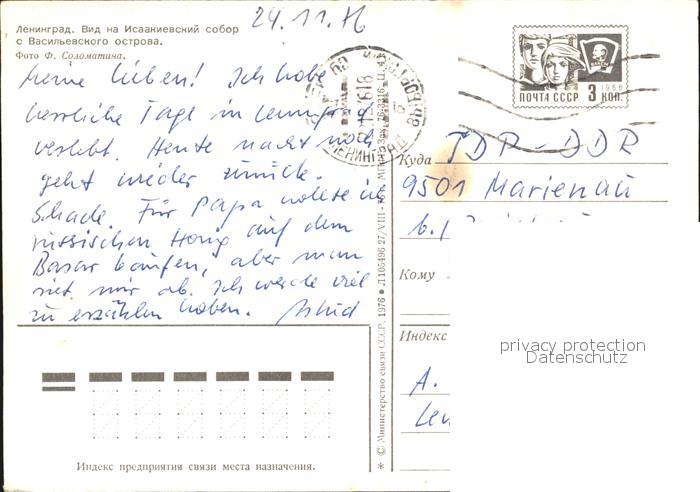 24.11.76
Ленинград. Вид на Исаакиевский собор
с Васильевского острова.
Фото Ф. Соломатина.
Meine Lieben! Ich habe
herrliche Tage in Leningrad
verlebt. Heute nacht noch
geht wieder zurück.
Schade. Für Papa wollte ich
russischen Honig auf dem
Basar kaufen, aber man
riet mir ab. Ich werde viel
zu erzählen haben.
ПОЧТА СССР 3 КОП.
1966
ЛЕНИНГРАД
Куда ГДР-DDR
9501 Marienau
b.
Кому
Индекс
A.
Len
privacy protection
Datenschutz
Индекс предприятия связи места назначения.
* © Министерство связи СССР, 1976 ● Л105496 27/VIII